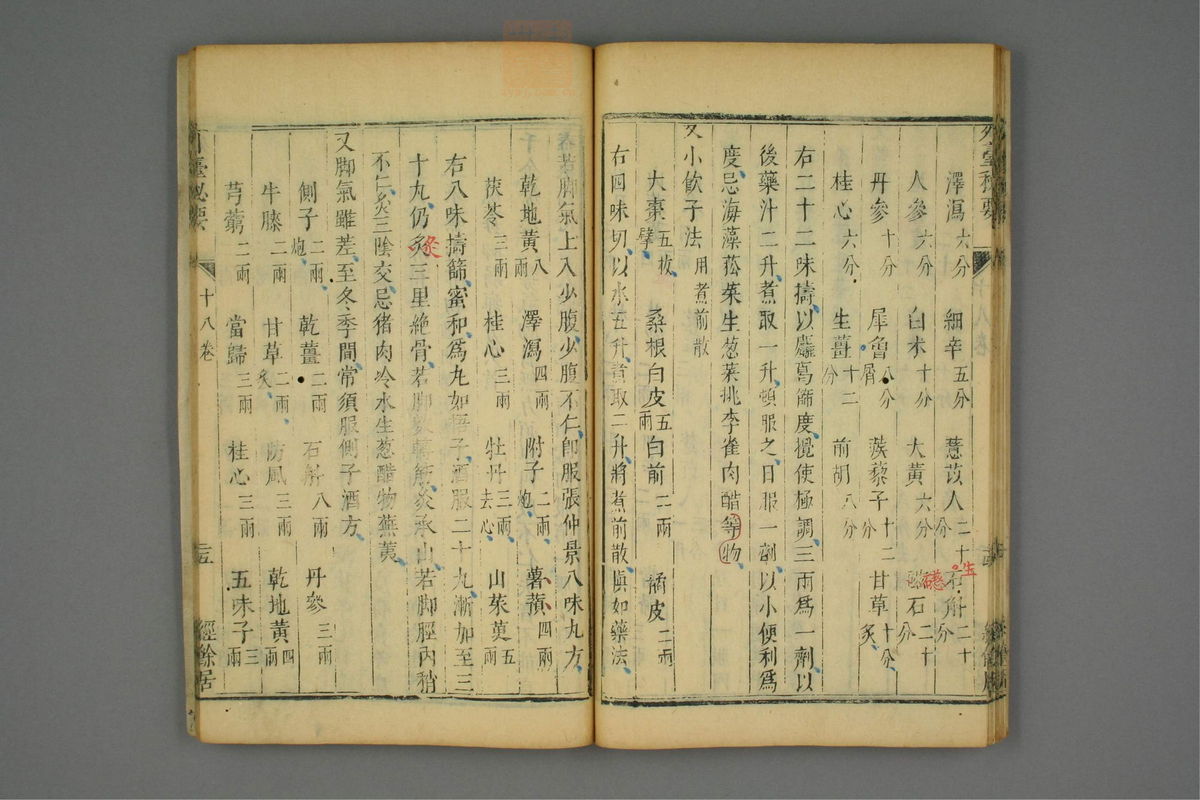 外臺秘要
澤瀉六分 細辛五分 薏苡人二十分 石斛二十分
生
人參六分 白术十分 大黃六分 磁石二十分
礠
丹參十分 犀角八分屑 蒺藜子十二分 甘草十分炙
桂心六分 生薑十二分 前胡八分
右二十二味擣以麤葛篩度攪使極調三兩爲一劑以
後藥汁二升煮取一升頓服之日服一劑以小便利爲
度忌海藻菘菜生葱菜桃李雀肉醋等物
又小飲子法用煮前散
大棗五枚擘 桑根白皮五兩 白前二兩 橘皮二兩
右四味切以水五升煮取二升將煮前散慎如藥法
脚氣上入少腹少腹不仁卽服張仲景八味丸方
乾地黃八兩 澤瀉四兩 附子二兩炮 薯蕷四兩
茯苓三兩 桂心三兩 牡丹三兩去心 山茱萸五兩
右八味擣篩蜜和爲丸如梧子酒服二十丸漸加至三
十丸仍灸三里絕骨若脚數轉筋灸承山若脚脛內稍
灸
不仁灸三陰交忌猪肉冷水生葱醋物蕪荑
又脚氣雖差至冬季間常須服側子酒方
側子二兩炮 乾薑二兩 石斛八兩 丹參三兩
牛膝二兩 甘草二兩炙 防風三兩 乾地黃四兩
芎藭二兩 當歸三兩 桂心三兩 五味子三兩
臺秘要 十八卷 二五 經餘居